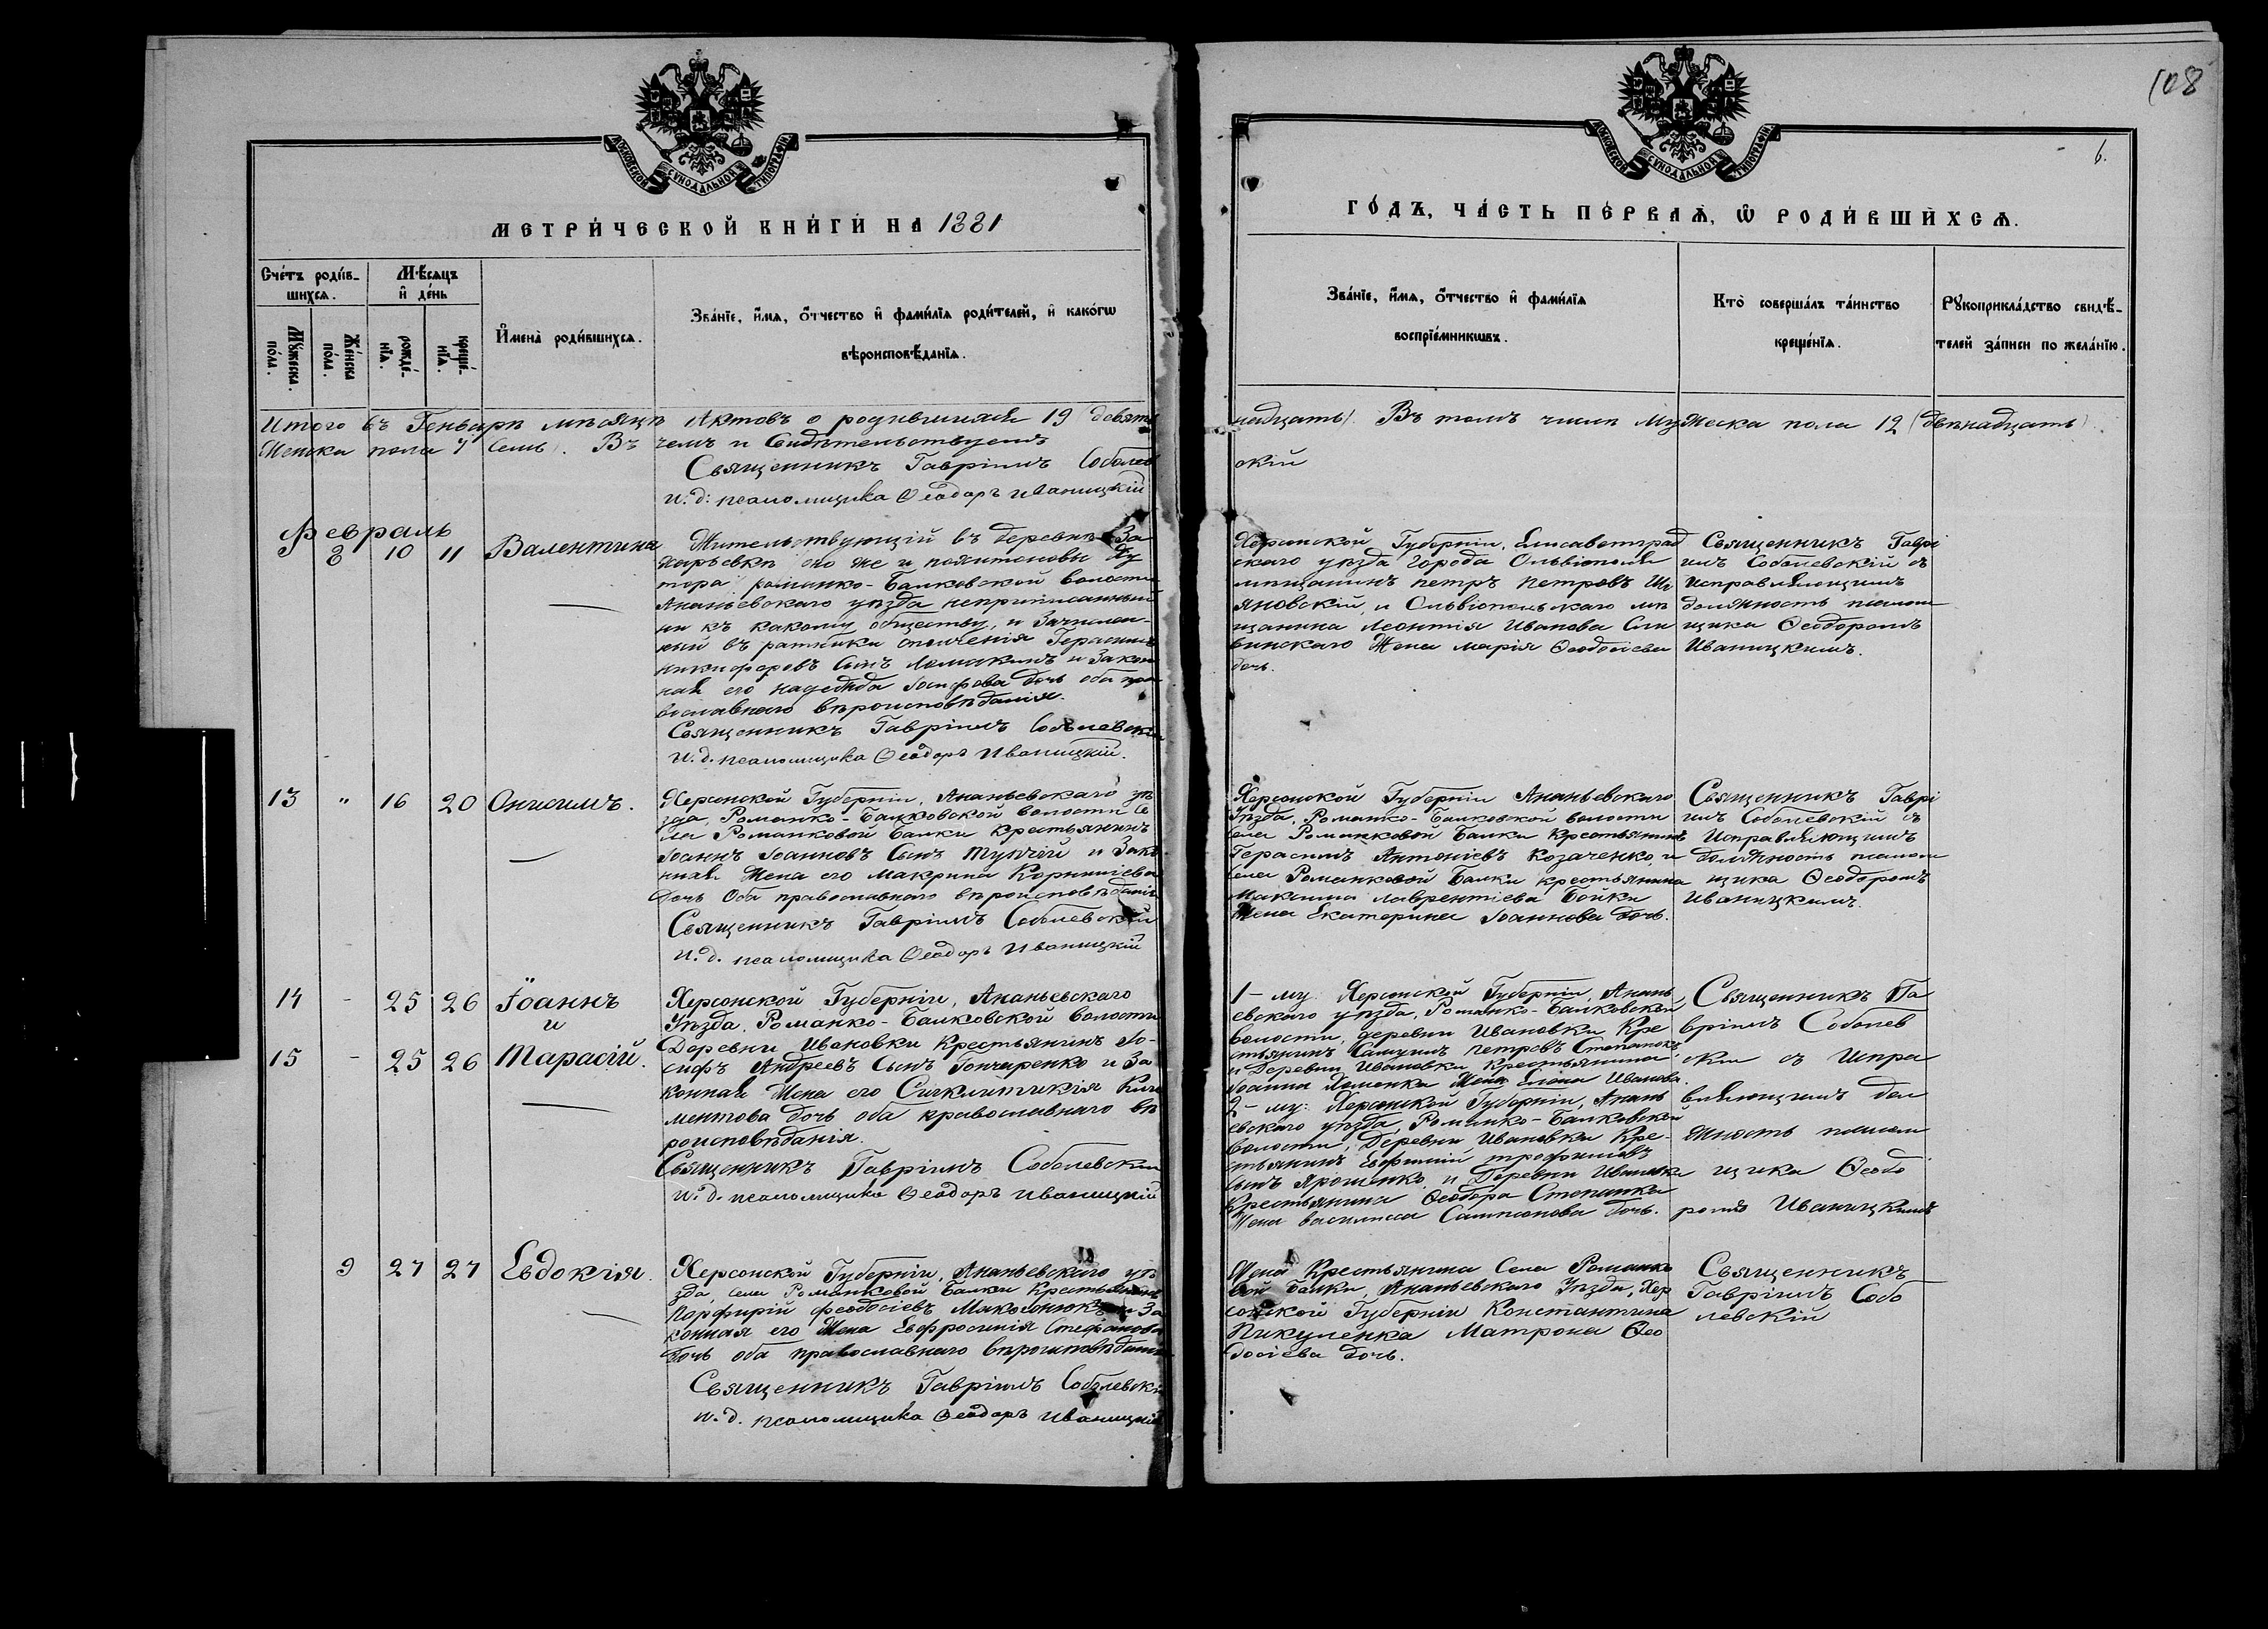 108
6.
МОСКОВСКОЙ СѴНОДАЛЬНОЙ ТИПОГРАФІИ
МОСКОВСКОЙ СѴНОДАЛЬНОЙ ТИПОГРАФІИ
МЕТРИ́ЧЕСКОЙ КНИ́ГИ НА 1881
ГО́ДЪ, ЧА́СТЬ ПЕ́РВАѦ, Ѡ РОДИ́ВШИХСѦ.
Сче́тъ роди́в-
шихсѧ.
Мꙋ́жеска по́ла.
Же́нска по́ла.
Мѣ́сѧцъ
и҆ де́нь
рожде́-
нїѧ.
креще́-
нїѧ.
И҆мена̀ роди́вшихсѧ.
Зва́нїе, и҆́мѧ, ѻ҆́тчество и҆ фамѝлїѧ роди́телей, и҆ како́гѡ
вѣроисповѣ́данїѧ.
Зва́нїе, и҆́мѧ, ѻ҆́тчество и҆ фамѝлїѧ
воспрїе́мникѡвъ.
Кто̀ соверша́лъ та́инство
креще́нїѧ.
Рꙋкоприкла́дство свидѣ́-
телей за́писи по жела́нїю.
Итого въ Генварѣ мѣсяцѣ Актовъ о родившихся 19 (девять
надцать). Въ томъ числѣ Мужеска пола 12 (двѣнадцать)
Женска пола 7 (Семь). Въ чемъ и Свидѣтельствуемъ
Священникъ Гавріилъ Соболев
скій
и. д. псаломщика Ѳеодоръ Иваницкій
Февраль
8 10 11 Валентина
Жительствующій въ деревнѣ За
харьевкѣ оно же и
тора романко-Балковской волости
Ананьевскаго уѣзда неприписанный
ни къ какому обществу, и Зачислен-
ный въ ратники ополченія Герасимъ
Никифоровъ Сынъ и Закон
ная его надежда дочь оба пра
вославнаго вѣроисповѣданія.
Священникъ Гавріилъ Соболевскій
и. д. псаломщика Ѳеодоръ Иваницкій.
Херсонской Губерніи, Елисаветград
скаго уѣзда города Ольвіополя
мѣщанинъ петръ Петровъ
яновскій, и Ольвіопольскаго мѣ
щанина Леонтія Иванова
винскаго Жена марія Ѳеодосіева
дочь.
Священникъ Гаврі
илъ Соболевскій съ
исправляющимъ
должность псалом
щика Ѳеодоромъ
Иваницкимъ.
13 " 16 20 Онисимъ.
Херсонской Губерніи, Ананьевскаго уѣ
зда, Романко-Балковской волости Се
ла Романковой Балки Крестьянинъ
Іоаннъ Іоанновъ Сынъ и Зако
нная Жена его Макрина Корниліева
Дочь Оба православнаго вѣроисповѣданія
Священникъ Гавріилъ Соболевскій
и. д. псаломщика Ѳеодоръ Иваницкій
Херсонской Губерніи Ананьевскаго
Уѣзда, Романко-Балковской волости
села Романковой Балки крестьянинъ
Герасимъ Антоніевъ Козаченко, и
села Романковой Балки крестьянина
Максима Лаврентіева Бойки
Жена Екатерина Іоаннова дочь.
Священникъ Гаврі
илъ Соболевскій съ
Исправляющимъ
должность псалом
щика Ѳеодоромъ
Иваницкимъ.
14 - 25 26 Іоаннъ
и
15 - 25 26 Тарасій.
Херсонской Губерніи, Ананьевскаго
Уѣзда, Романко-Балковской волости
Деревни Ивановки Крестьянинъ Іо-
сифъ Андреевъ Сынъ Гончаренко и За
конная Жена его Синклитикія Кли
ментова дочь оба православнаго вѣ
роисповѣданія.
Священникъ Гавріилъ Соболевскій
и. д. псаломщика Ѳеодоръ Иваницкій
1-му Херсонской Губерніи, Анань
евскаго уѣзда, Романко-Балковской
волости, деревни Ивановки Кре
стьянинъ петровъ
и Деревни Ивановки крестьянина
Іоанна Хоменка Жена Елена Иванова.
2-му: Херсонской Губерніи, Анань
евскаго уѣзда, Романко-Балковской
волости, Деревни Ивановки Кре-
стьянинъ Евфимій трофимовъ
сынъ Ярошенко, и Деревни Ивановки
Крестьянина Ѳеодора Степанка
Жена василисса Сампсонова дочь.
Священникъ Га
вріилъ Соболев
скій съ Испра
вляющимъ дол
жность псалом
щика Ѳеодо
ромъ Иваницкимъ
9 27 27 Евдокія.
Херсонской Губерніи, Ананьевскаго уѣ
зда, села Романковой Балки Крестьянинъ
Порфирій Феодосіевъ и За
конная его Жена Евфросинія Стефанова
Дочь оба православнаго вѣроисповѣданія
Священникъ Гавріилъ Соболевскій
и. д. псаломщика Ѳеодоръ Иваницкій
Жена Крестьянина Села Романко
вой Балки, Ананьевскаго Уѣзда, Хер
сонской Губерніи Константина
Пикуленка Матрона Ѳео
досіева дочь.
Священникъ
Гавріилъ Собо
левскій